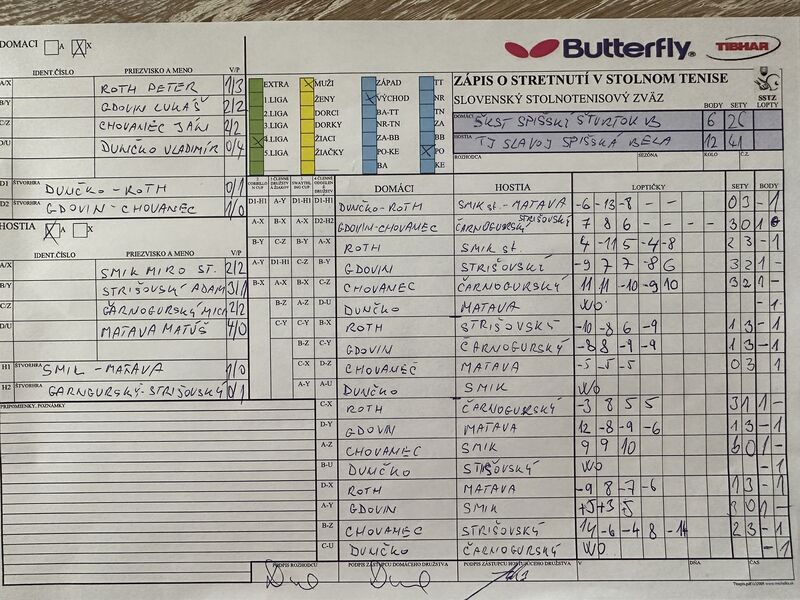 DOMACI A X
Butterfly
TIBHAR
IDENT.ČÍSLO PRIEZVISKO A MENO V/P
A/X ROTH PETER 1/3
B/Y GDOVIN LUKÁŠ 2/2
C/Z CHOVANEC JÁN 2/2
D/U DUNČKO VLADIMÍR 0/4
D1 ŠTVORHRA DUNČKO - ROTH 0/1
D2 GDOVIN - CHOVANEC 1/0
HOSTIA A X
IDENT.ČÍSLO PRIEZVISKO A MENO V/P
A/X SMIK MIRO ST. 2/2
B/Y STRIŠOVSKÝ ADAM 3/1
C/Z ČARNOGURSKÝ 2/2
D/U MATAVA MATÚŠ 4/0
H1 ŠTVORHRA SMIK - MATAVA 1/0
H2 ŠTVORHRA GARNGURSKÝ - STRIŠOVSKÝ 0/1
PRIPOMIENKY, POZNÁMKY
EXTRA MUŽI ZÁPAD TT
1.LIGA ŽENY VÝCHOD NR
2.LIGA DORCI BA-TT TN
3.LIGA DORKY NR-TN ZA
4.LIGA ŽIACI ZA-BB BB
5.LIGA ŽIAČKY PO-KE PO
BA KE
ZÁPIS O STRETNUTÍ V STOLNOM TENISE
SLOVENSKÝ STOLNOTENISOVÝ ZVÄZ
SSTZ
BODY SETY LOPTY
DOMÁCI ŠKST SPIŠSKÝ ŠTVRTOK B 6
HOSTIA TJ SLAVOJ SPIŠSKÁ BELA 12 41
ROZHODCA SEZÓNA KOLO Č.Z.
DOMÁCI HOSTIA LOPTIČKY SETY BODY
D1-H1 A-Y D1-H1 DUNČKO - ROTH SMIK st. - MATAVA -6 -13 -8 - - 0 3 - 1
A-X B-X D2-H2 GDOVIN - CHOVANEC ČARNOGURSKÝ STRIŠOVSKÝ 7 8 6 - - 3 0 1
B-Y C-Z A-X ROTH SMIK st. 4 -11 5 -4 -8 2 3 - 1
A-Y D1-H1 B-Y GDOVIN STRIŠOVSKÝ -9 7 7 -8 6 3 2 1 -
B-X A-X C-Z CHOVANEC ČARNOGURSKÝ 11 11 -10 -9 10 3 2 1 -
B-Z A-Z D-U DUNČKO MATAVA WO - 1
C-Y C-Y B-X ROTH STRIŠOVSKÝ -10 -8 6 -9 1 3 - 1
B-Z C-Y GDOVIN ČARNOGURSKÝ -8 8 -9 -9 1 3 - 1
C-X D-Z CHOVANEC MATAVA -5 -5 -5 0 3 1
A-Y A-U DUNČKO SMIK WO
C-X ROTH ČARNOGURSKÝ -3 8 5 5 3 1 1 -
D-Y GDOVIN MATAVA 12 -8 -9 -6 1 3 - 1
A-Z CHOVANEC SMIK 9 9 10 0 1 -
B-U DUNČKO STRIŠOVSKÝ WO - 1
D-X ROTH MATAVA -9 8 -7 -6 1 3 - 1
A-Y GDOVIN SMIK +5 +3 5 3 0 1 -
B-Z CHOVANEC STRIŠOVSKÝ 14 -6 -4 8 -14 2 3 - 1
C-U DUNČKO ČARNOGURSKÝ WO - 1
PODPIS ROZHODCU PODPIS ZÁSTUPCU DOMÁCEHO DRUŽSTVA PODPIS ZÁSTUPCU HOSŤUJÚCEHO DRUŽSTVA V DŇA ČAS